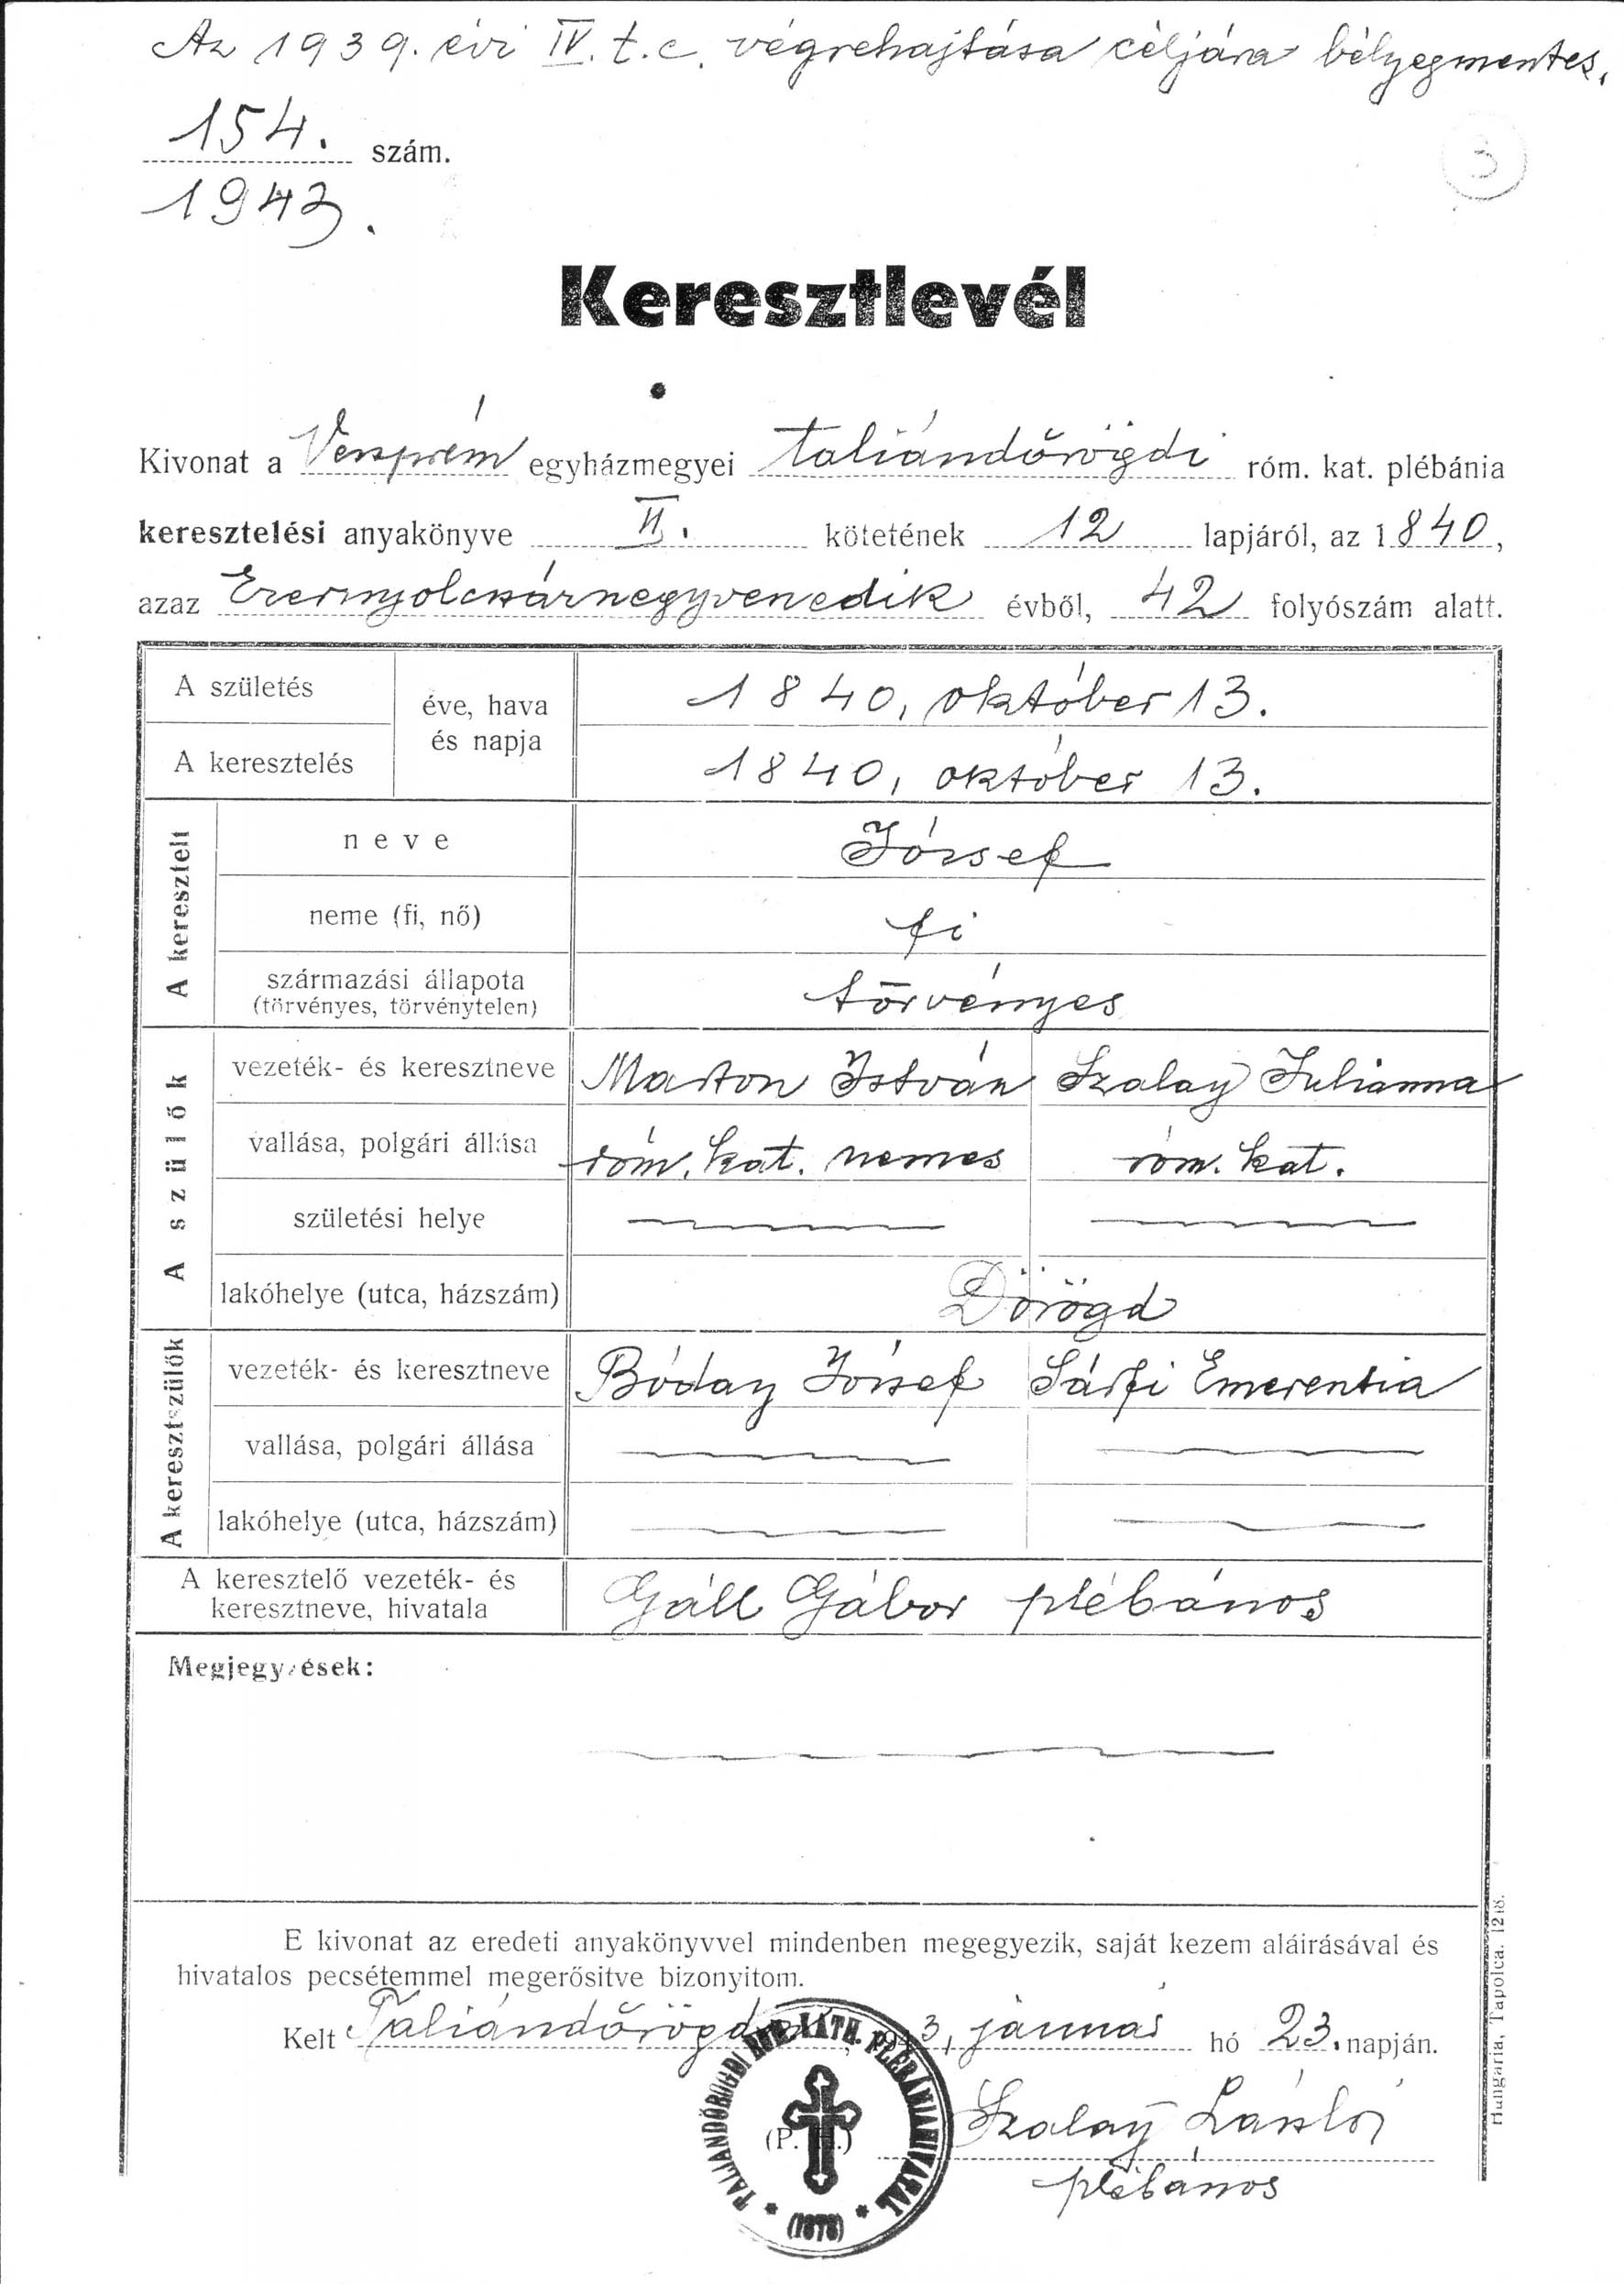 Az 1939. évi IV. t. c. végrehajtása céljára bélyegmentes.
154. szám.
3
1943.
Keresztlevél
Kivonat a Veszprém egyházmegyei taliándörögdi róm. kat. plébánia
keresztelési anyakönyve II. kötetének 12 lapjáról, az 1840,
azaz Ezernyolcszáznegyvenedik évből, 42 folyószám alatt.
A születés éve, hava és napja 1840, október 13.
A keresztelés 1840, október 13.
A keresztelt
neve József
neme (fi, nő) fi
származási állapota
(törvényes, törvénytelen) törvényes
A szülők
vezeték- és keresztneve Marton István Szalay Julianna
vallása, polgári állása róm. kat. nemes róm. kat.
születési helye
lakóhelye (utca, házszám) Dörögd
A keresztszülők
vezeték- és keresztneve Bóday József Sárfi Emerentia
vallása, polgári állása
lakóhelye (utca, házszám)
A keresztelő vezeték- és
keresztneve, hivatala Gáll Gábor plébános
Megjegyzések:
E kivonat az eredeti anyakönyvvel mindenben megegyezik, saját kezem aláirásával és
hivatalos pecsétemmel megerősitve bizonyitom.
Kelt Taliándörögdön, 1943, január hó 23. napján.
(P. H.)
Szalay László
plébános
TALJÁNDÖRÖGDI RÓM. KATH. PLÉBÁNIAHIVATAL
(1878)
Hungária, Tapolca. 1218.